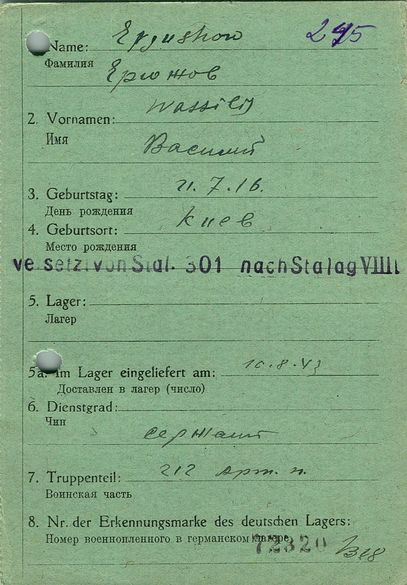 Name: 295
Фамилия Ерюжов
Wassilij
2. Vornamen:
Имя Василий
3. Geburtstag: 21.7.16.
День рождения
4. Geburtsort: Киев
Место рождения
ve setzt von Stal. 301 nach Stalag VIIII
5. Lager:
Лагер
5a. Im Lager eingeliefert am: 10.8.43
Доставлен в лагер (число)
6. Dienstgrad:
Чин сержант
7. Truppenteil: 212 арт. п.
Воинская часть
8. Nr. der Erkennungsmarke des deutschen Lagers:
Номер военнопленного в германском лагере 72320